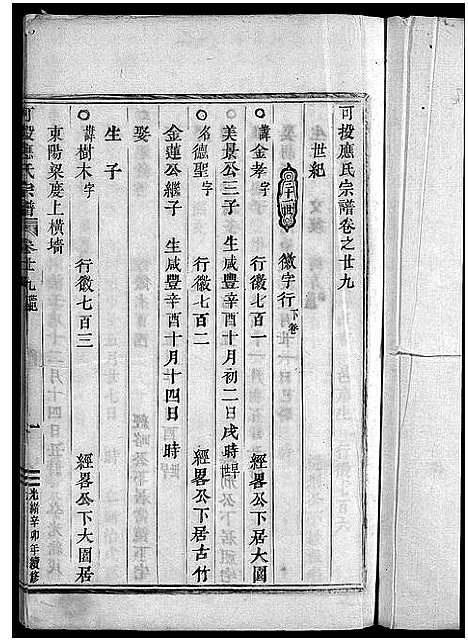 可投應氏宗譜卷之廿九
生世紀
二十一世 徽字行 下卷
諱金孝字 行徽七百一 經畧公下居大園
美景公三子 生咸豐辛酉十月初二日戌時
名德聖字 行徽七百二 經畧公下居古竹
金蓮公繼子 生咸豐辛酉十月十四日 時
娶
生子
諱樹木字 行徽七百三 經畧公下大園居
東陽梁度上橫墻
可投應氏宗譜 卷廿九
一
光緒辛卯年續修